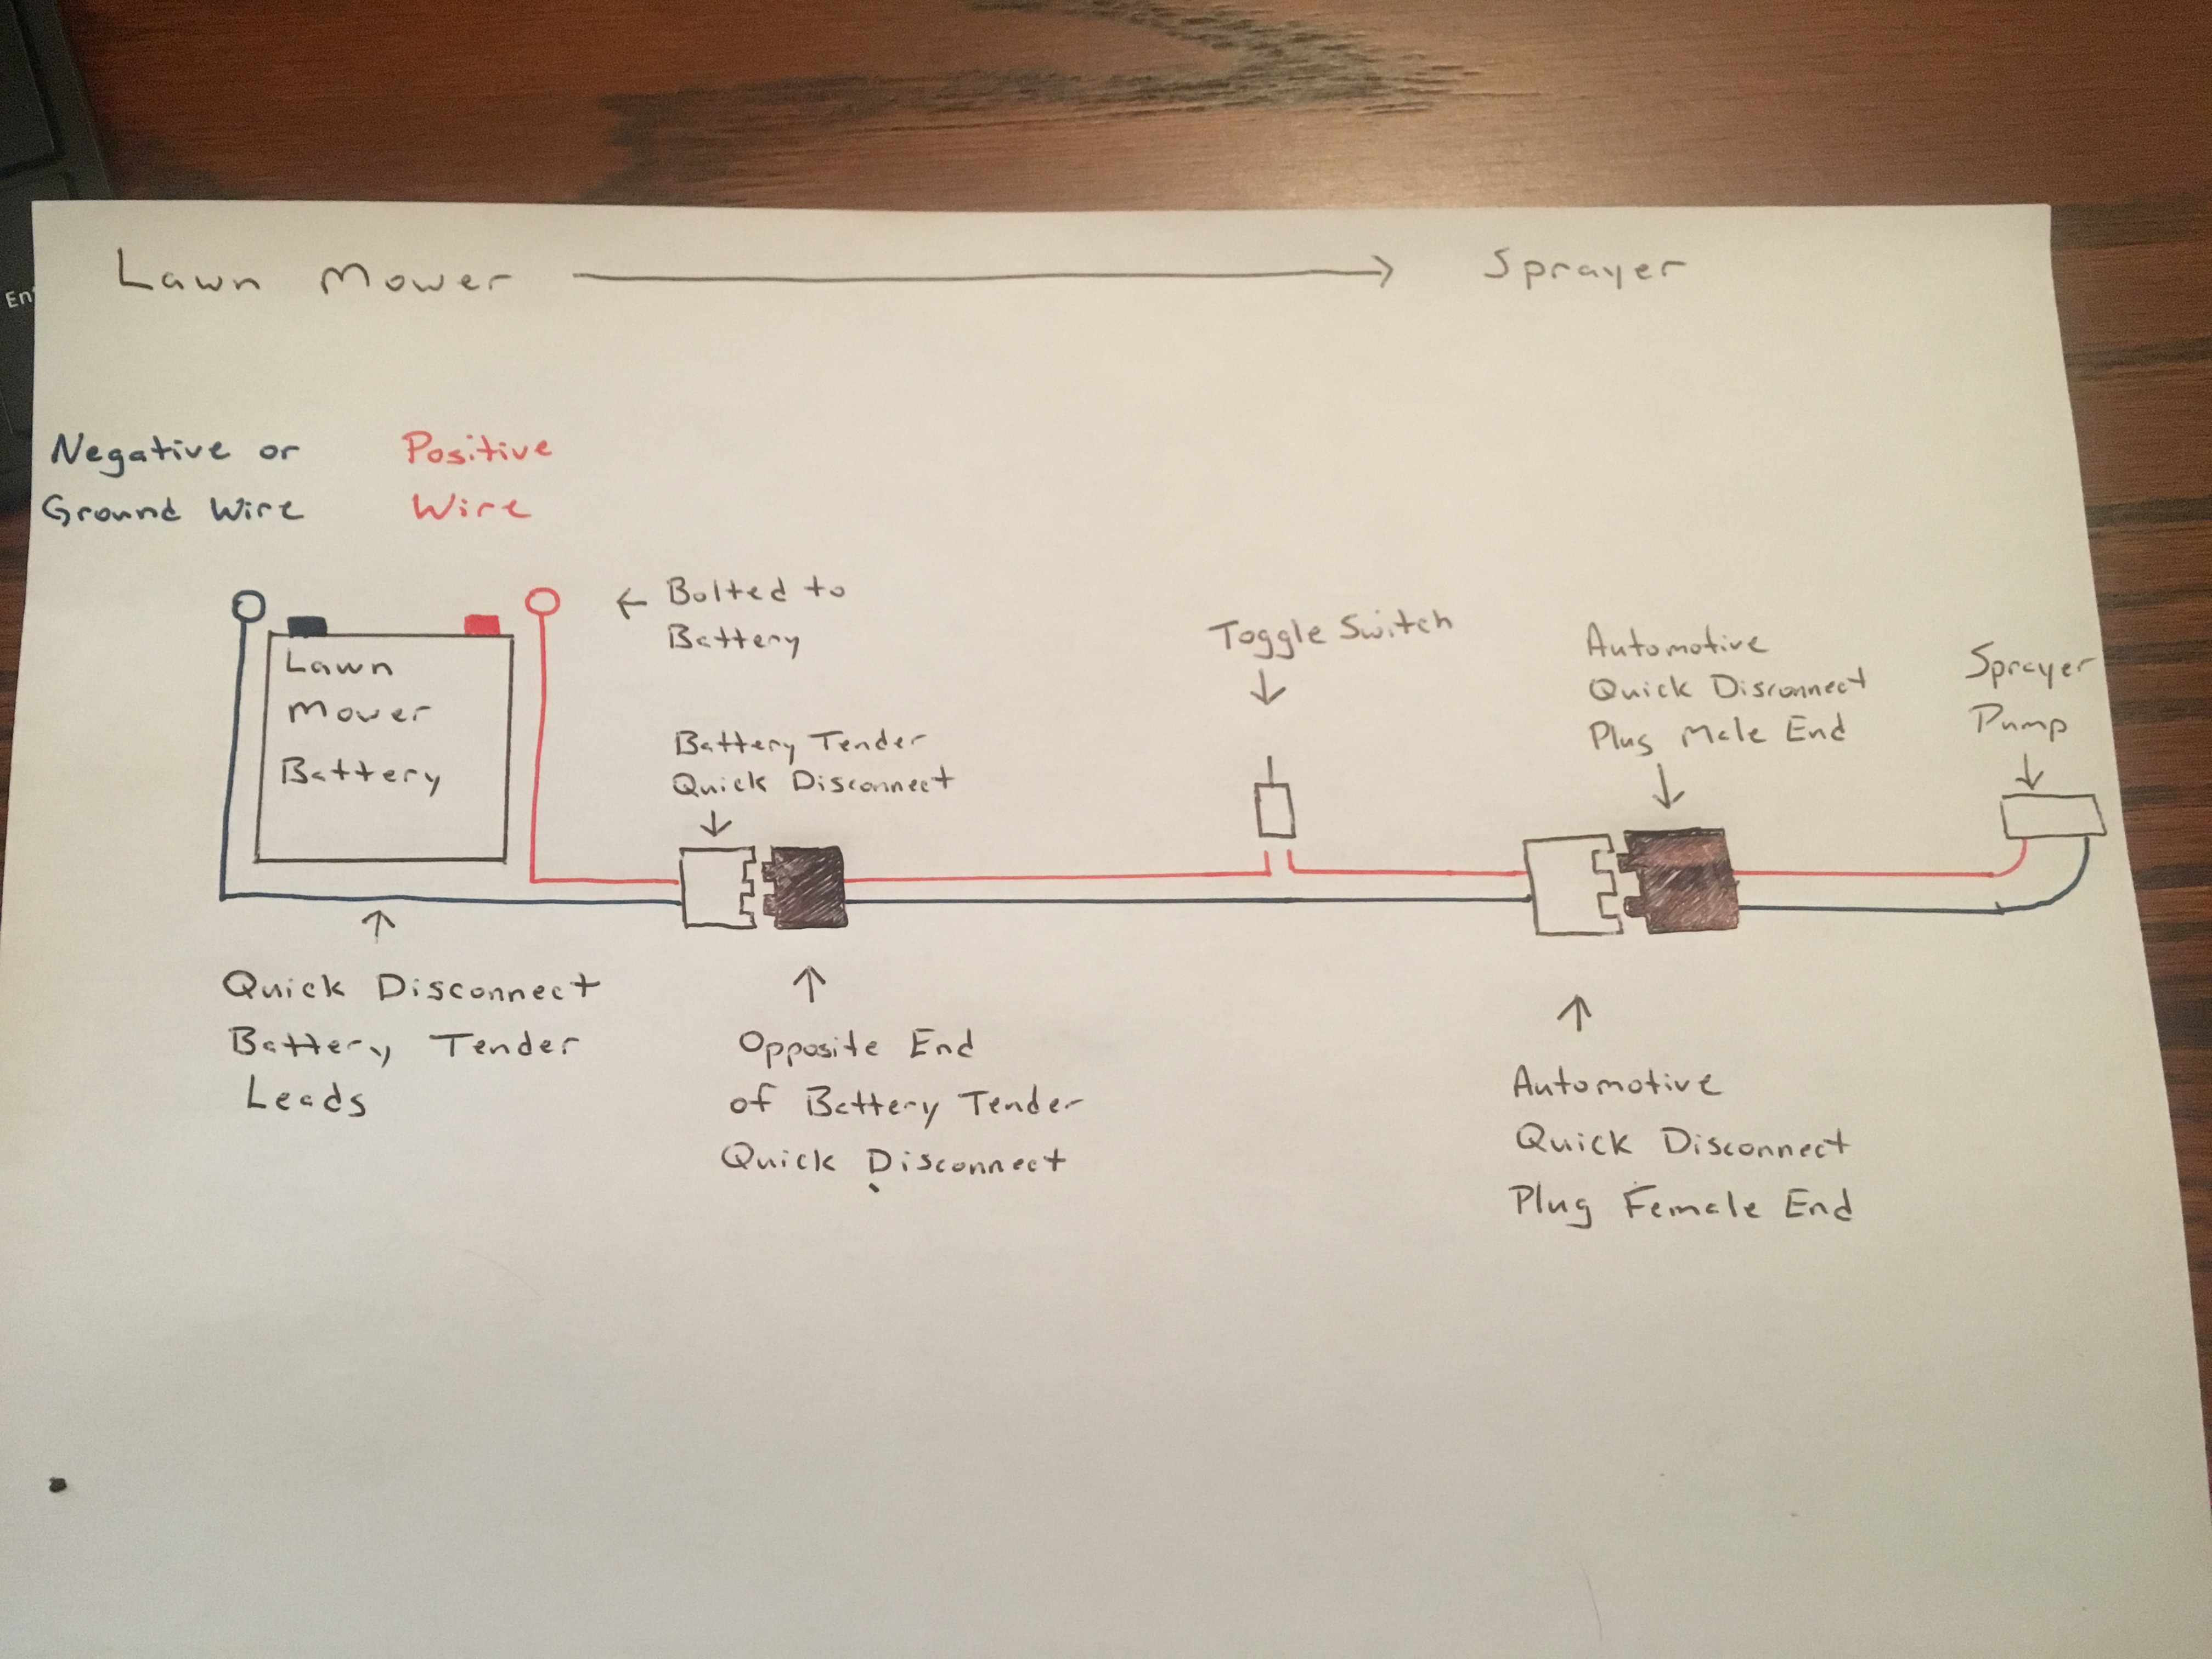 Lawn Mower
Sprayer
En
Negative or
Ground Wire
Positive
Wire
Bolted to
Battery
Lawn
Mower
Battery
Battery Tender
Quick Disconnect
Toggle Switch
Automotive
Quick Disconnect
Plug Male End
Sprayer
Pump
Quick Disconnect
Battery Tender
Leads
Opposite End
of Battery Tender
Quick Disconnect
Automotive
Quick Disconnect
Plug Female End